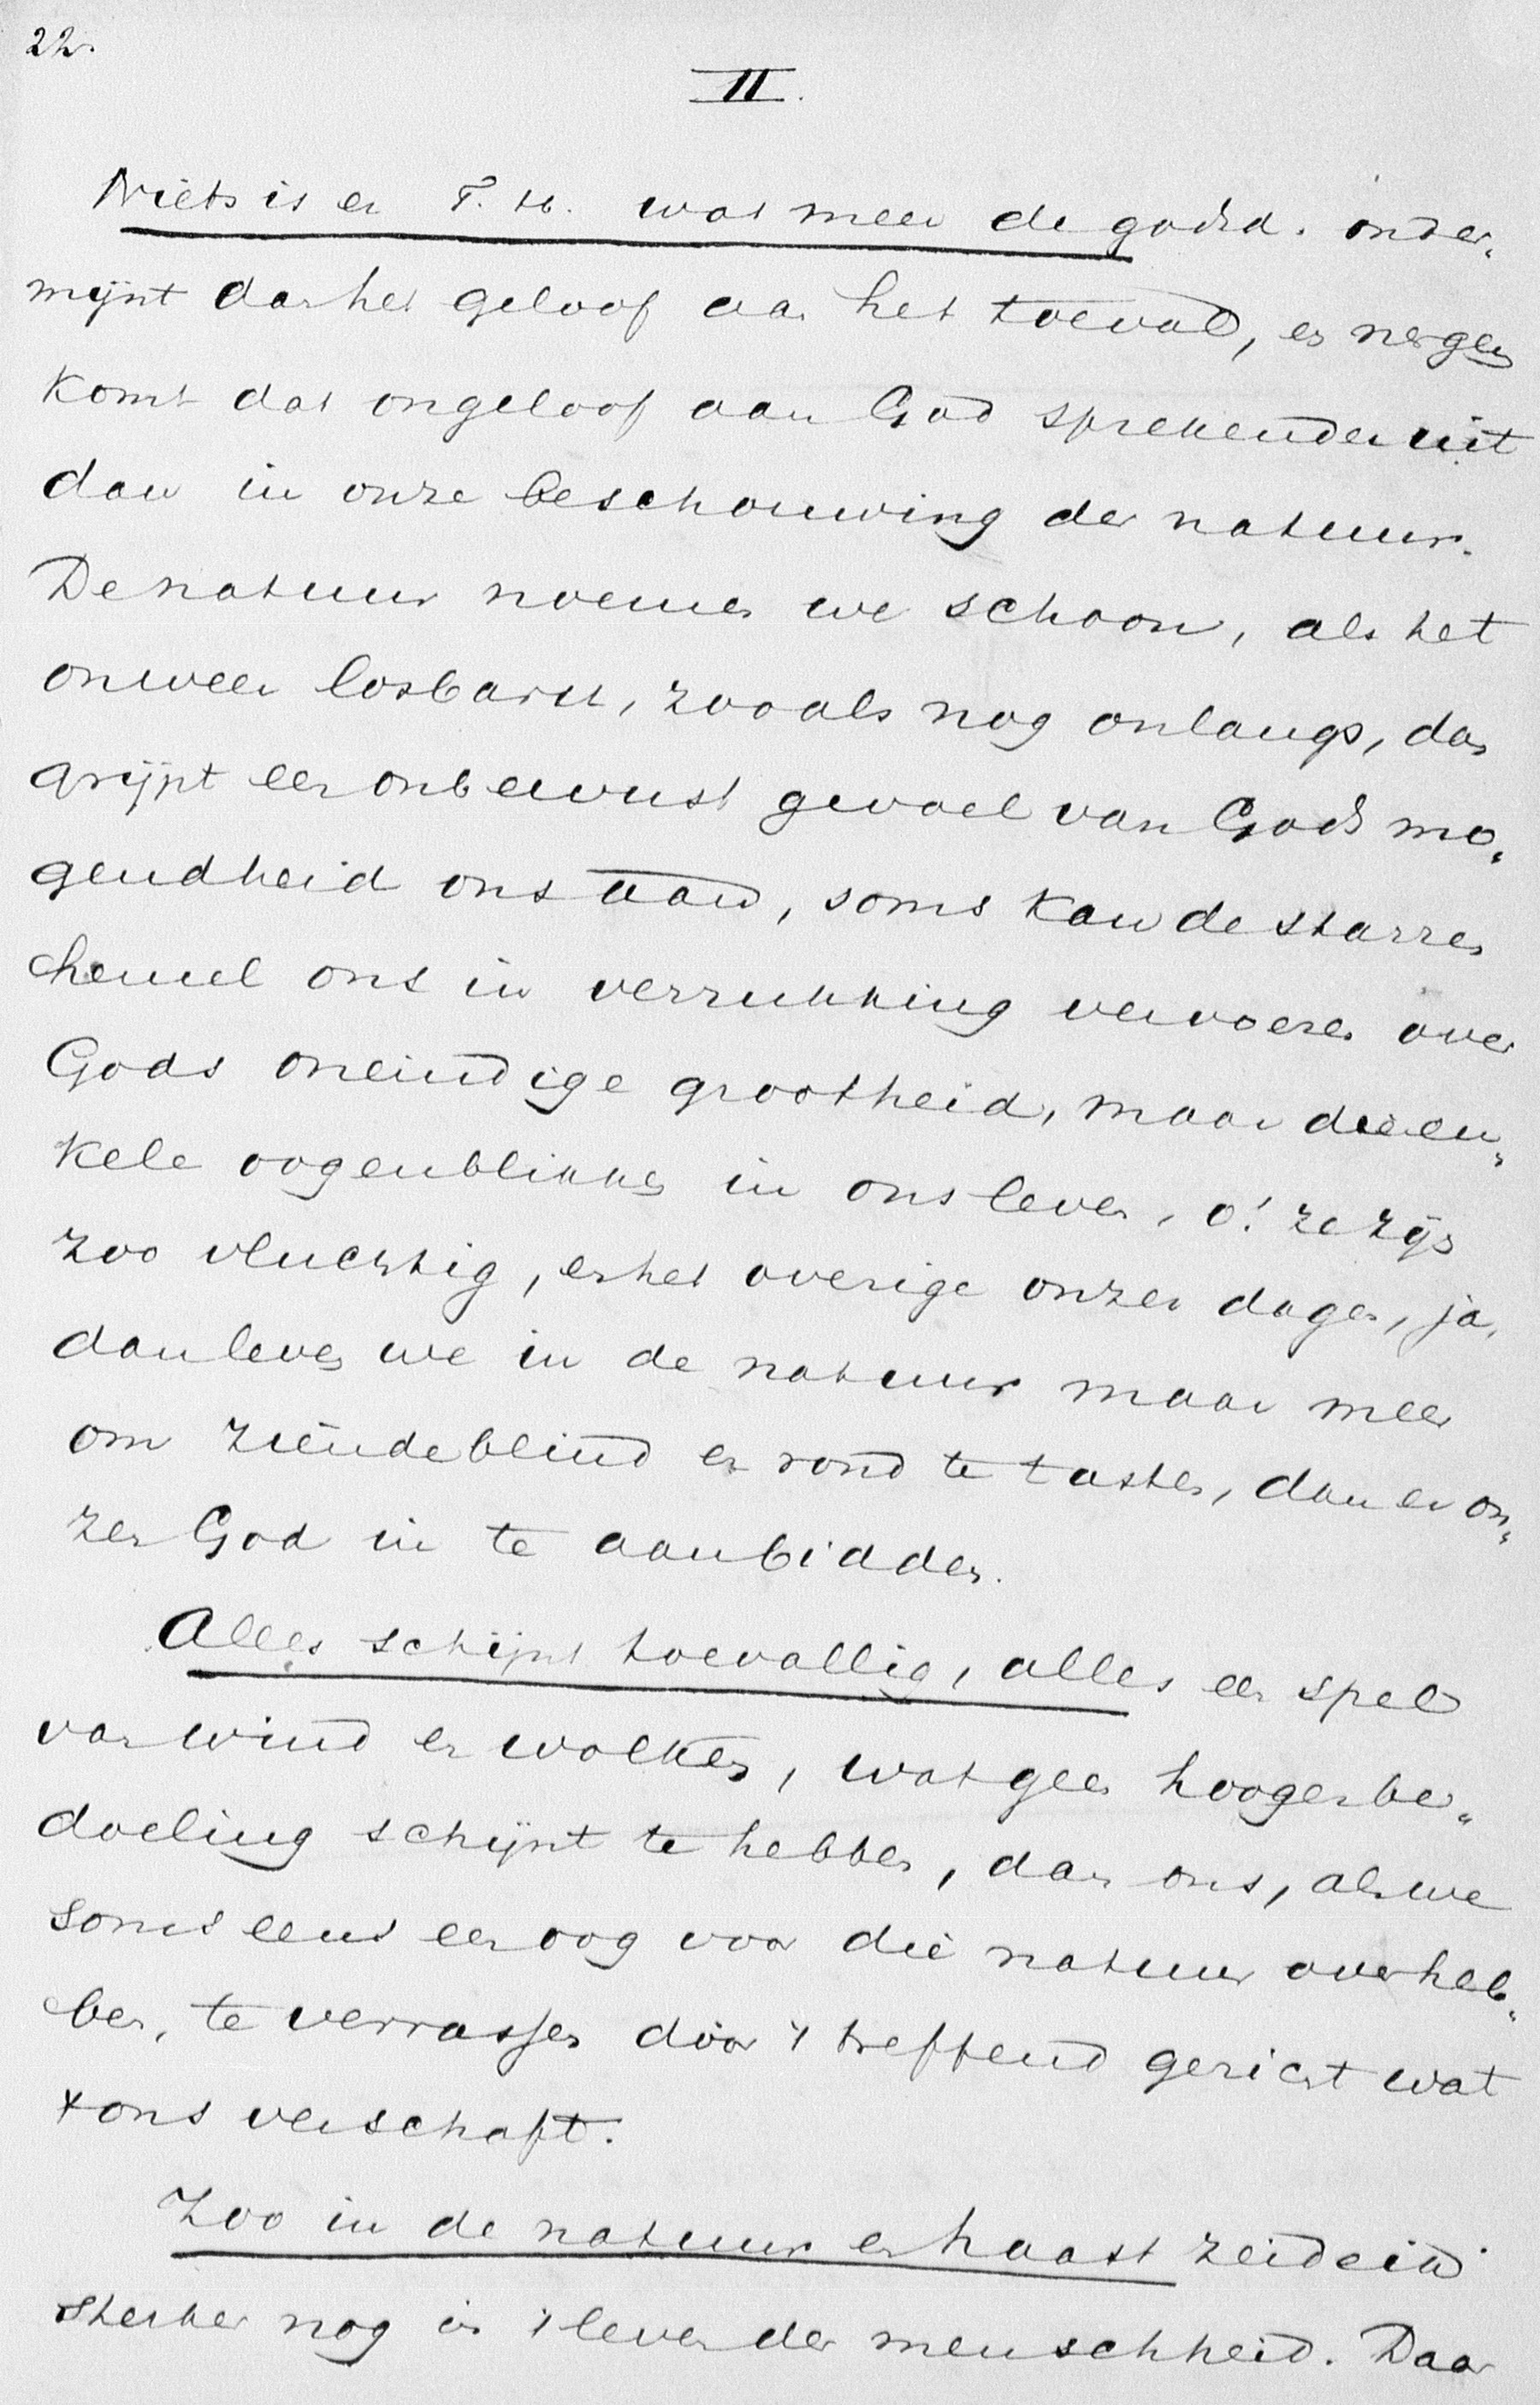 22.
II.
Niets is er T. H. wat meer de godsd. onder-
mijnt dan het geloof aan het toeval, en nergens
komt dat ongeloof aan God sprekender uit
dan in onze beschouwing der natuur.
De natuur noemen we schoon, als het
onweer losbarst, zooals nog onlangs, dan
grijpt een onbewust gevoel van Gods mo-
gendheid ons aan, soms kan de starren
hemel ons in verrukking vervoeren over
Gods oneindige grootheid, maar die en-
kele oogenblikken in ons leven, o! ze zijn
zoo vluchtig, en het overige onzer dagen, ja,
dan leven we in de natuur maar meer
om ziende blind er rond te tasten, dan er on-
zen God in te aanbidden.
Alles schijnt toevallig, alles een spel
van wind en wolken, wat geen hooger be-
doeling schijnt te hebben, dan ons, als we
soms eens een oog voor die natuur over heb-
ben, te verrassen door 't treffend gezicht wat
't ons verschaft.
Zoo in de natuur en haast zeide ik
sterker nog in 't leven der menschheid. Daar